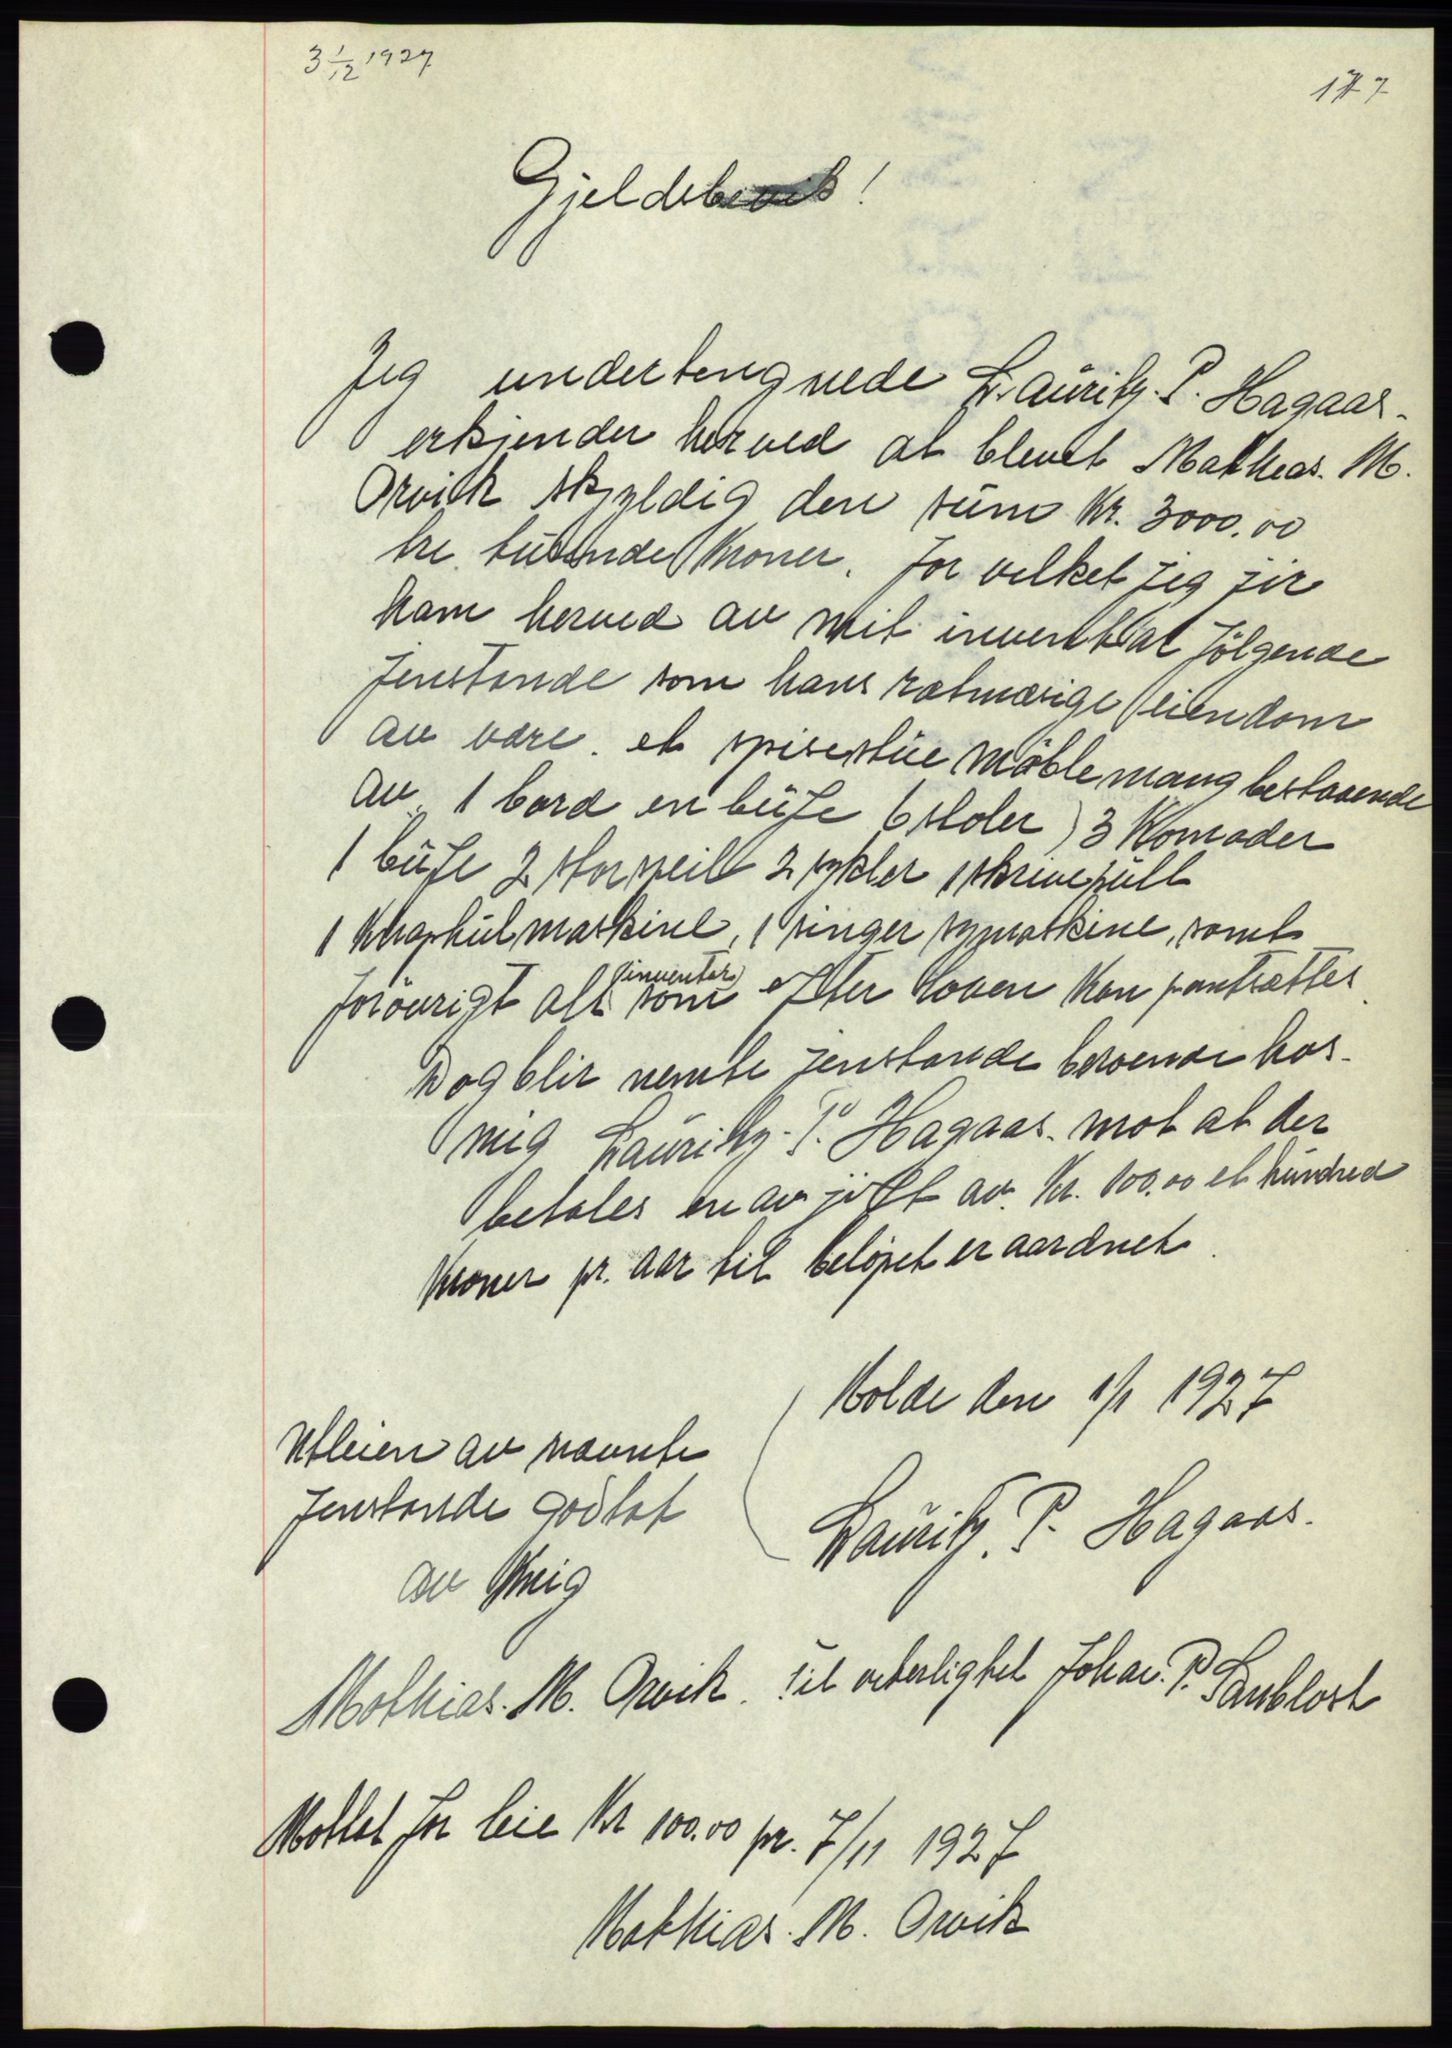 3 1/12 1927
177
Gjeldsbevis!
Jeg undertengnede Lauritz. P. Hagaas.
erkjender herved at blevet Mathias. M.
Orvik skyldig den sum Kr. 3000.00
tre tusinde Kroner. for velket jeg jir
ham herved av mit inventar følgende
jenstande som hans ratmæsige eiendom
av være. et spisestue møblemang bestaaende
av 1 bord en büfe 6 stoler) 3 Komoder
1 büfe 2 stor speil 2 sykler 1 skrivepült
1 Knaphülmaskine, 1 singer symaskine, samt
forøvrigt alt inventar som efter loven kan pantsættes.
Dog blir nemte jenstande beroende hos
mig Lauritz. P. Hagaas. mot at der
betales en avjift av Kr. 100.00 et hündred
Kroner pr. aar til beløpet er aardnet.
Molde den 1/1 1927
Utleien av navnte
jenstande godtat
av mig
Lauritz. P. Hagaas.
Mathias. M. Orvik. Til vetterlighet Johan. P.
Mottat for leie Kr 100.00 pr. 7/11 1927
Mathias. M. Orvik